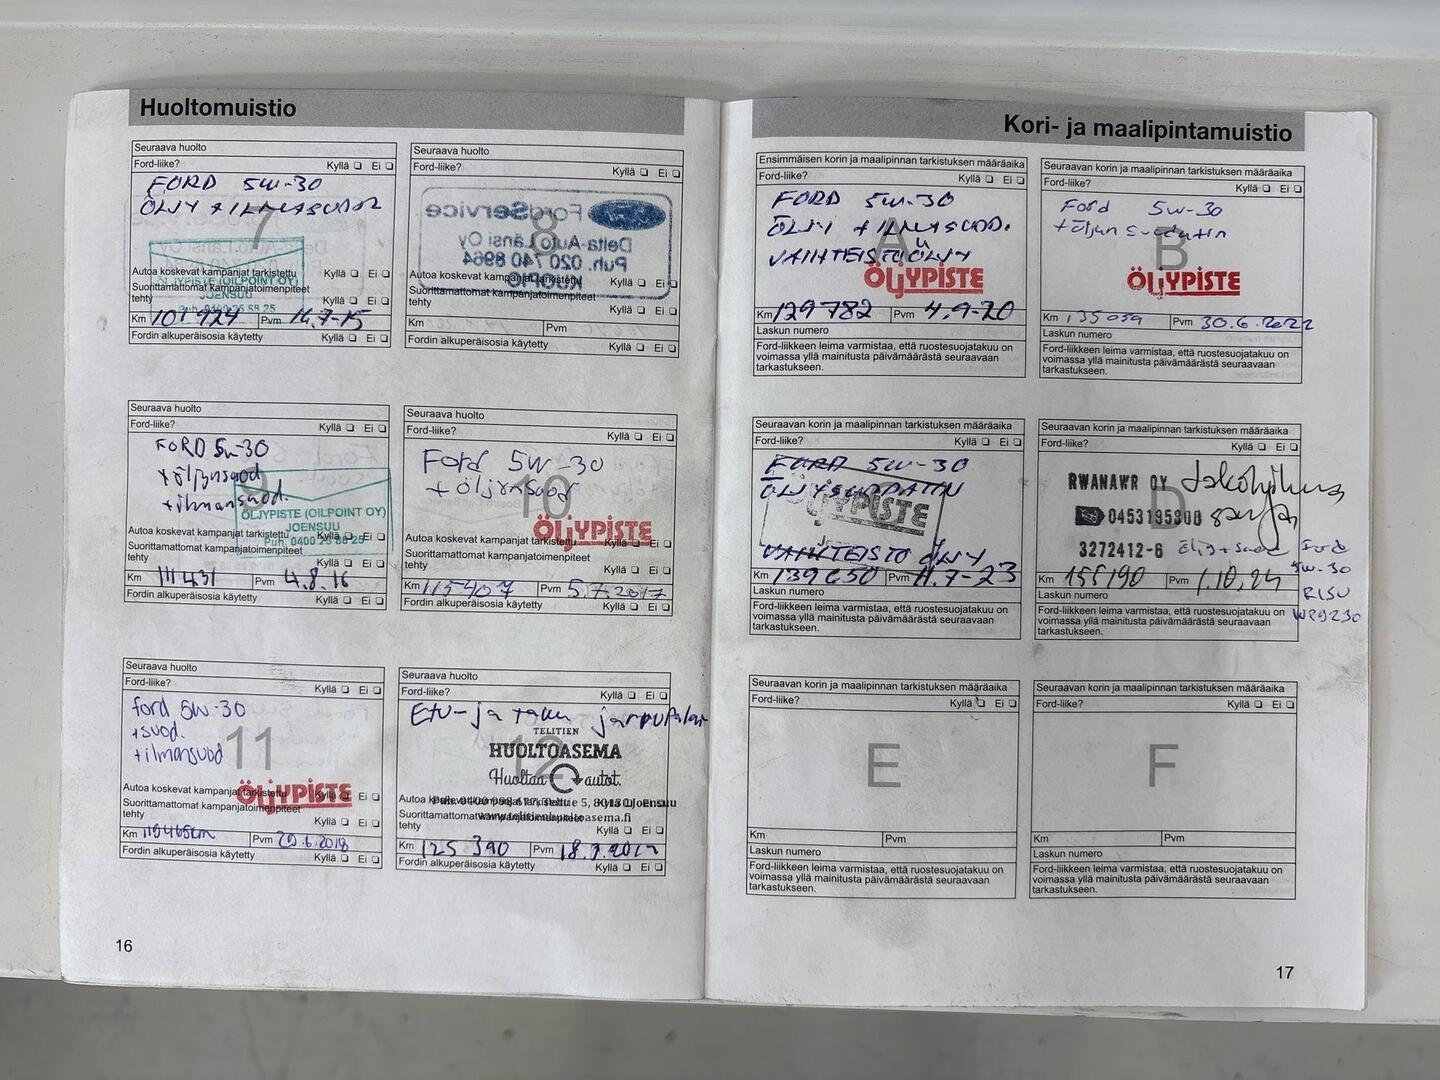 Huoltomuistio
Seuraava huolto
Ford-liike? Kyllä Ei
FORD 5W-30
ÖLJY + ILMASUOD
7
ÖLJYPISTE (OILPOINT OY)
JOENSUU
Autoa koskevat kampanjat tarkistettu Kyllä Ei
Suorittamattomat kampanjatoimenpiteet
tehty Kyllä Ei
Km 107924 Pvm 14.7-15
Fordin alkuperäisosia käytetty Kyllä Ei
Seuraava huolto
Ford-liike? Kyllä Ei
8
FordService
Delta-Auto Länsi Oy
Puh. 020 740 8964
KUOPIO
Autoa koskevat kampanjat tarkistettu Kyllä Ei
Suorittamattomat kampanjatoimenpiteet
tehty Kyllä Ei
Km Pvm
Fordin alkuperäisosia käytetty Kyllä Ei
Seuraava huolto
Ford-liike? Kyllä Ei
FORD 5w-30
+ öljynsuod
+ ilmansuod.
9
ÖLJYPISTE (OILPOINT OY)
JOENSUU
Puh. 0400 26 88 25
Autoa koskevat kampanjat tarkistettu Kyllä Ei
Suorittamattomat kampanjatoimenpiteet
tehty Kyllä Ei
Km 111431 Pvm 4.8.16
Fordin alkuperäisosia käytetty Kyllä Ei
Seuraava huolto
Ford-liike? Kyllä Ei
Ford 5W-30
+ öljynsuod
10
ÖLJYPISTE
Autoa koskevat kampanjat tarkistettu Kyllä Ei
Suorittamattomat kampanjatoimenpiteet
tehty Kyllä Ei
Km 115407 Pvm 5.7.2017
Fordin alkuperäisosia käytetty Kyllä Ei
Seuraava huolto
Ford-liike? Kyllä Ei
ford 5W-30
+suod.
+ilmansuod
11
ÖLJYPISTE
Autoa koskevat kampanjat tarkistettu Kyllä Ei
Suorittamattomat kampanjatoimenpiteet
tehty Kyllä Ei
Km Pvm 29.6.2018
Fordin alkuperäisosia käytetty Kyllä Ei
Seuraava huolto
Ford-liike? Kyllä Ei
Etu- ja taka jarrupalat
12
TELITIEN
HUOLTOASEMA
Huoltaa autot.
Autoa koskevat kampanjat tarkistettu Kyllä Ei
Suorittamattomat kampanjatoimenpiteet
tehty Kyllä Ei
Km 125 390 Pvm
Fordin alkuperäisosia käytetty Kyllä Ei
16
Kori- ja maalipintamuistio
Ensimmäisen korin ja maalipinnan tarkistuksen määräaika
Ford-liike? Kyllä Ei
FORD 5W-30
ÖLJY + ILMASUOD.
VAIHTEISTOÖLJY
A
ÖLJYPISTE
Km 129782 Pvm 4.9-20
Laskun numero
Ford-liikkeen leima varmistaa, että ruostesuojatakuu on
voimassa yllä mainitusta päivämäärästä seuraavaan
tarkastukseen.
Seuraavan korin ja maalipinnan tarkistuksen määräaika
Ford-liike? Kyllä Ei
Ford 5w-30
+ öljyn suodatin
B
ÖLJYPISTE
Km 135039 Pvm 30.6.2022
Laskun numero
Ford-liikkeen leima varmistaa, että ruostesuojatakuu on
voimassa yllä mainitusta päivämäärästä seuraavaan
tarkastukseen.
Seuraavan korin ja maalipinnan tarkistuksen määräaika
Ford-liike? Kyllä Ei
FORD 5W-30
ÖLJYSUODATIN
ÖLJYPISTE
VAIHTEISTOÖLJY
Km 139650 Pvm 11.7-23
Laskun numero
Ford-liikkeen leima varmistaa, että ruostesuojatakuu on
voimassa yllä mainitusta päivämäärästä seuraavaan
tarkastukseen.
Seuraavan korin ja maalipinnan tarkistuksen määräaika
Ford-liike? Kyllä Ei
D
RWANAWR OY Jakohihna
0453195300 sarja
3272412-6 Öljy + suod Ford
5w-30
RISU
Km 155190 Pvm 1.10.24
Laskun numero
Ford-liikkeen leima varmistaa, että ruostesuojatakuu on
voimassa yllä mainitusta päivämäärästä seuraavaan
tarkastukseen.
Seuraavan korin ja maalipinnan tarkistuksen määräaika
Ford-liike? Kyllä Ei
E
Km Pvm
Laskun numero
Ford-liikkeen leima varmistaa, että ruostesuojatakuu on
voimassa yllä mainitusta päivämäärästä seuraavaan
tarkastukseen.
Seuraavan korin ja maalipinnan tarkistuksen määräaika
Ford-liike? Kyllä Ei
F
Km Pvm
Laskun numero
Ford-liikkeen leima varmistaa, että ruostesuojatakuu on
voimassa yllä mainitusta päivämäärästä seuraavaan
tarkastukseen.
17